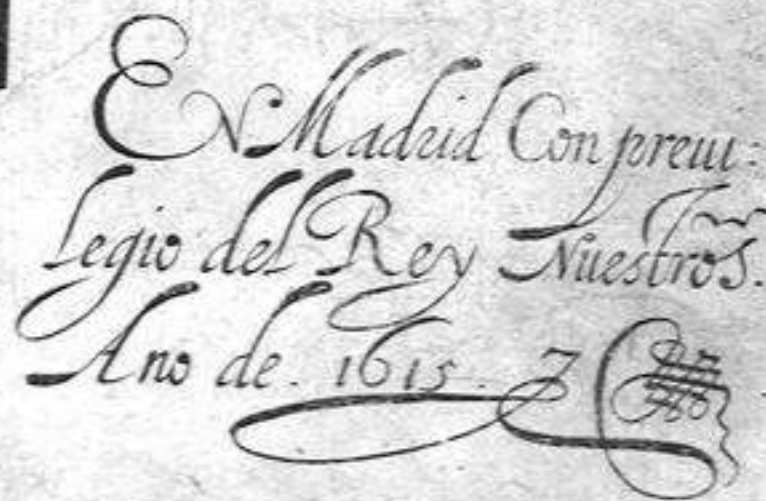 EN Madrid Con preui:
legio del Rey Nuestro S.
Ano de. 1615.